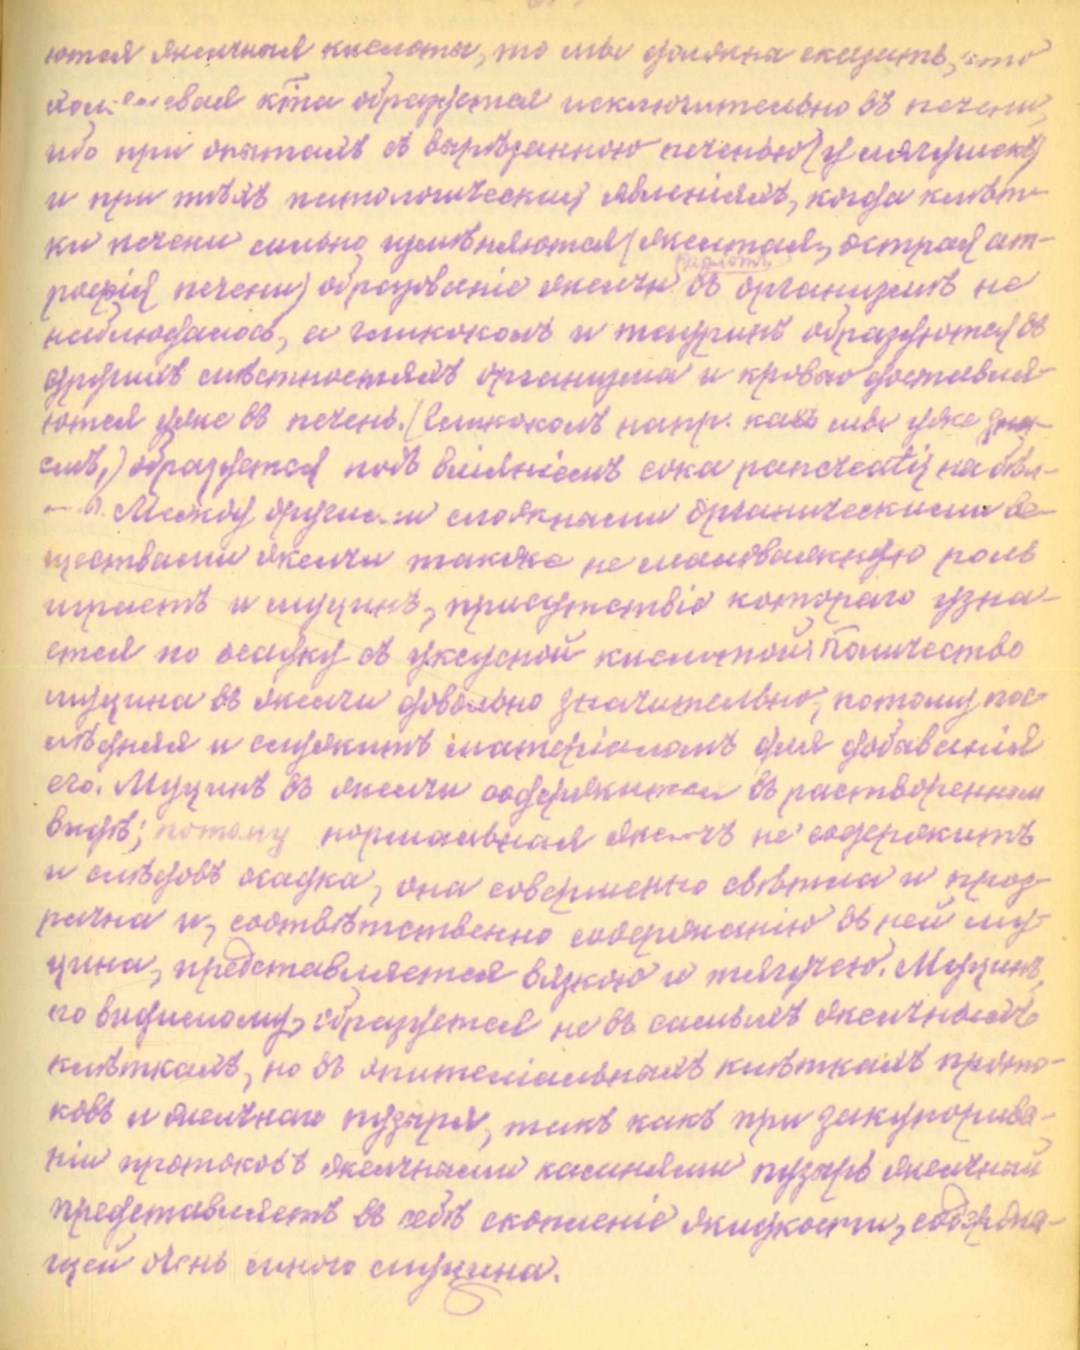 ются желчныя кислоты, то мы должны сказать, что
холелевая к͠та образуется исключительно въ печени,
ибо при опытахъ съ вырѣзанною печенью (у лягушекъ)
и при тѣхъ патологическихъ явленіяхъ, когда клѣт-
ки печени сильно измѣняются (желтая, острая ат-
рофія печени) образованіе желчи въ организмѣ не
наблюдалось, а гликоколъ и тауринъ образуются въ
другихъ мѣстностяхъ организма и кровью доставля-
ются уже въ печень. (Гликоколъ напр. какъ мы уже зна-
емъ,) образуется подъ вліяніемъ сока pancreatis на бѣл-
Между другими сложными органическими ве-
ществами желчи также не маловажную роль
играетъ и муцинъ, присутствіе котораго узна-
ется по осадку съ уксусной кислотой; Количество
муцина въ желчи довольно значительно, потому пос-
лѣдняя и служитъ матеріаломъ для добыванія
его. Муцинъ въ желчи содержится въ растворенномъ
видѣ; потому нормальная желчь не содержитъ
и слѣдовъ осадка, она совершенно свѣтла и проз-
рачна и, соотвѣтственно содержанію въ ней му-
цина, представляется вязкою и тягучею. Муцинъ,
по видимому, образуется не въ самыхъ желчныхъ
клѣткахъ, но въ эпителіальныхъ клѣткахъ прото-
ковъ и желчнаго пузыря, такъ какъ при закупорива-
ніи протоковъ желчными камнями пузырь желчный
представляетъ въ себѣ скопленіе жидкости, содержа-
щей очень много муцина.